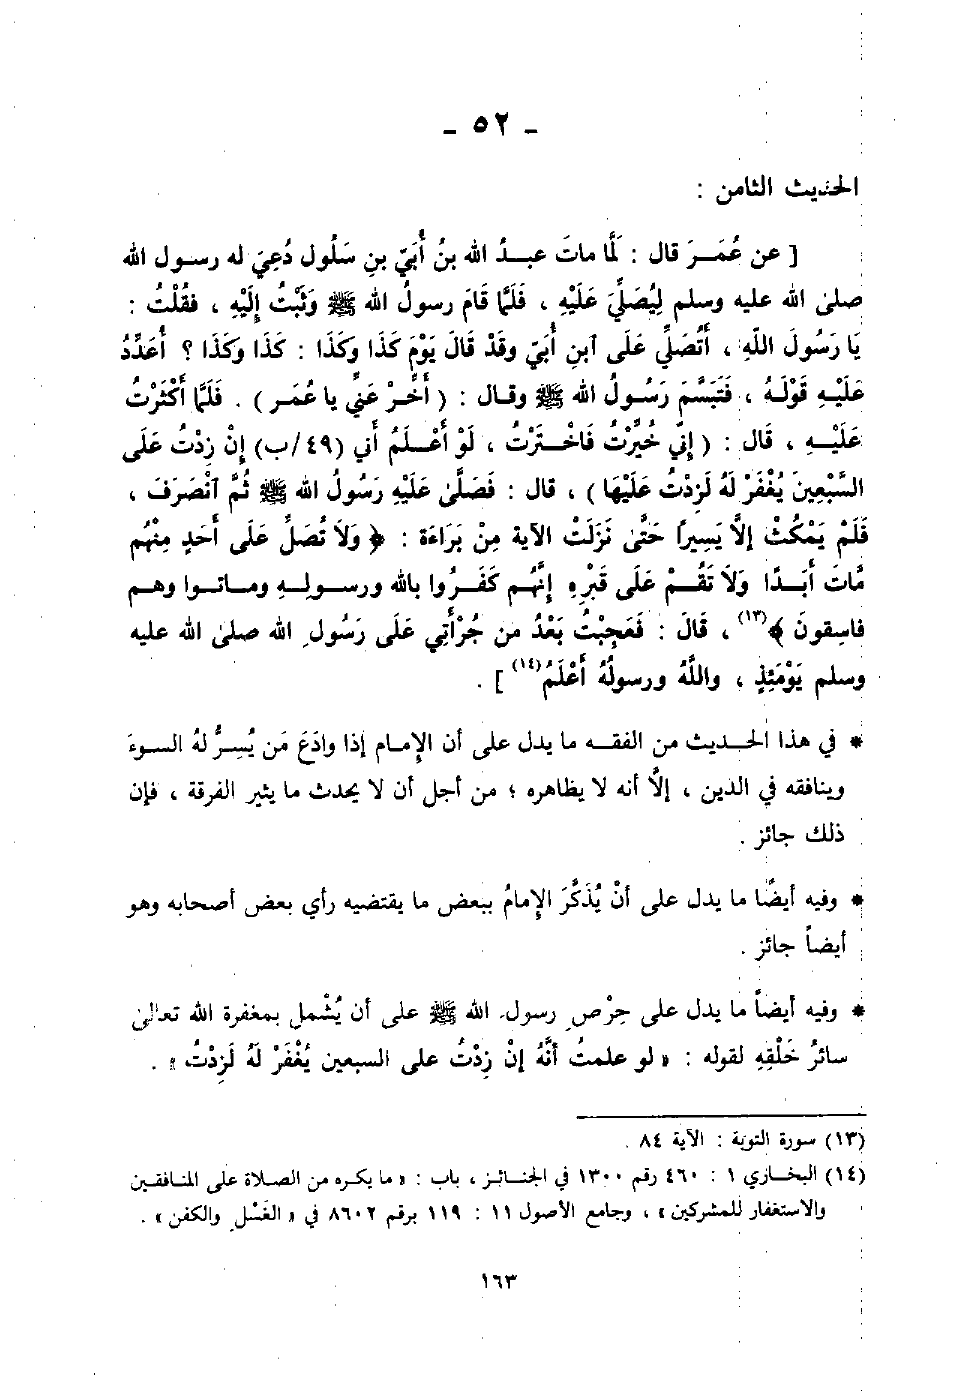 - ٥٢ -
الحديث الثامن :
[ عن عُمَـرَ قال : لَمَّا ماتَ عبـدُ الله بنُ أُبَيّ بنِ سَلُول دُعِيَ له رسول الله
صلى الله عليه وسلم لِيُصَلِّيَ عَلَيْهِ ، فَلَمَّا قَامَ رسولُ الله ﷺ وَثَبْتُ إِلَيْهِ ، فقُلْتُ :
يَا رَسُولَ اللَّهِ ، أَتُصَلِّي عَلَى ٱبنِ أُبَيّ وقَدْ قَالَ يَوْمَ كَذَا وكَذَا : كَذَا وكَذَا ؟ أُعَدِّدُ
عَلَيْهِ قَوْلَهُ ، فَتَبَسَّمَ رَسُولُ الله ﷺ وقال : ( أَخِّرْ عَنِّي يا عُمَر ) . فَلَمَّا أَكْثَرْتُ
عَلَيْهِ ، قَال : ( إِنّي خُيِّرْتُ فَاخْتَرْتُ ، لَوْ أَعْلَمُ أَني (٤٩/ب) إِنْ زِدْتُ عَلَى
السَّبْعِينَ يُغْفَرْ لَهُ لَزِدْتُ عَلَيْهَا ) ، قال : فَصَلَّىٰ عَلَيْهِ رَسُولُ الله ﷺ ثُمَّ ٱنْصَرَفَ ،
فَلَمْ يَمْكُثْ إِلَّا يَسِيرًا حَتَّىٰ نَزَلَتْ الآية مِنْ بَرَاءَة : ﴿ وَلاَ تُصَلِّ عَلَى أَحَدٍ مِنْهُم
مَّاتَ أَبَدًا وَلاَ تَقُمْ عَلَى قَبْرِهِ إِنَّهُم كَفَرُوا بالله ورسولِهِ وماتوا وهم
فاسِقونَ ﴾(١٣) ، قَالَ : فَعَجِبْتُ بَعْدُ من جُرْأَتِي عَلَى رَسُولِ الله صلى الله عليه
وسلم يَوْمَئِذٍ ، واللَّهُ ورسولُهُ أَعْلَمُ(١٤) ] .
* في هذا الحديث من الفقه ما يدل على أن الإمام إذا وادَعَ مَن يُسِرُّ لهُ السوءَ
وينافقه في الدين ، إلَّا أنه لا يظاهره ؛ من أجل أن لا يحدث ما يثير الفرقة ، فإن
ذلك جائز .
* وفيه أيضًا ما يدل على أنْ يُذَكِّرَ الإمامُ ببعض ما يقتضيه رأي بعض أصحابه وهو
أيضاً جائز .
* وفيه أيضاً ما يدل على حِرْصِ رسول الله ﷺ على أن يُشْمل بمغفرة الله تعالى
سائرُ خَلْقِهِ لقوله : « لو علمتُ أنَّهُ إنْ زِدْتُ على السبعين يُغْفَرْ لَهُ لَزِدْتُ » .
(١٣) سورة التوبة : الآية ٨٤ .
(١٤) البخاري ١ : ٤٦٠ رقم ١٣٠٠ في الجنائز ، باب : « ما يكره من الصلاة على المنافقين
والاستغفار للمشركين » ، وجامع الأصول ١١ : ١١٩ برقم ٨٦٠٢ في « الغَسْلِ والكفن » .
١٦٣